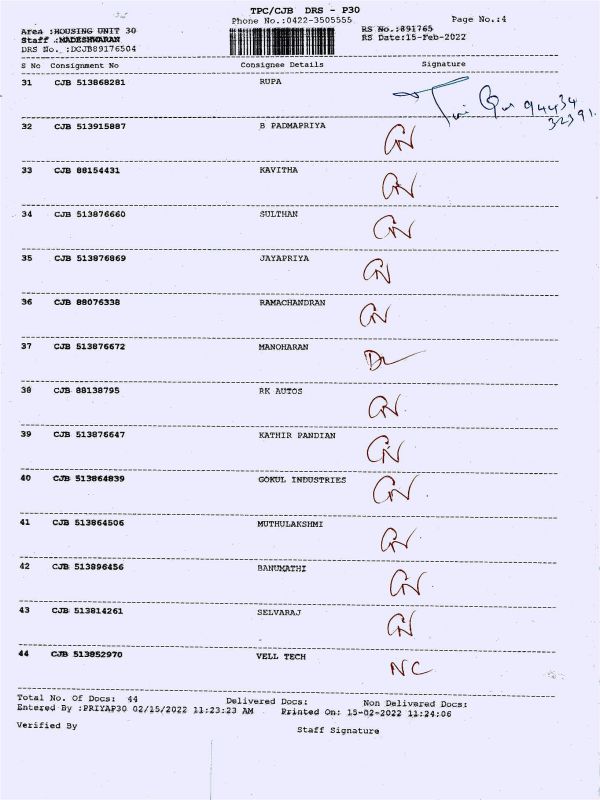 TPC/CJB DRS - P30
Phone No.:0422-3505555 Page No.:4
Area :HOUSING UNIT 30 RS No.:891765
Staff :MADESHWARAN RS Date:15-Feb-2022
DRS No. :DCJB89176504
S No Consignment No Consignee Details Signature
31 CJB 513868281 RUPA 94434
32391
32 CJB 513915887 B PADMAPRIYA
33 CJB 88154431 KAVITHA
34 CJB 513876660 SULTHAN
35 CJB 513876869 JAYAPRIYA
36 CJB 88076338 RAMACHANDRAN
37 CJB 513876672 MANOHARAN
38 CJB 88138795 RK AUTOS
39 CJB 513876647 KATHIR PANDIAN
40 CJB 513864839 GOKUL INDUSTRIES
41 CJB 513864506 MUTHULAKSHMI
42 CJB 513896456 BANUMATHI
43 CJB 513814261 SELVARAJ
44 CJB 513852970 VELL TECH NC
Total No. Of Docs: 44 Delivered Docs: Non Delivered Docs:
Entered By :PRIYAP30 02/15/2022 11:23:23 AM Printed On: 15-02-2022 11:24:06
Verified By Staff Signature